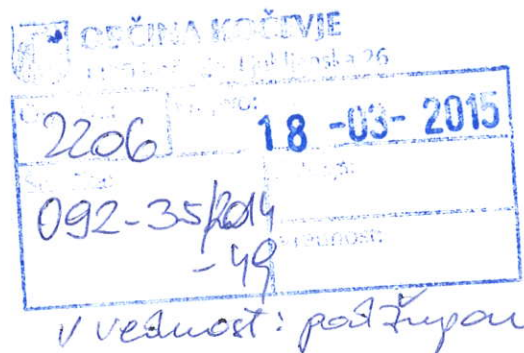 OBČINA KOČEVJE
Ljubljanska 26
2206
18 -03- 2015
092-35/2014
-49
V vednost: podžupan